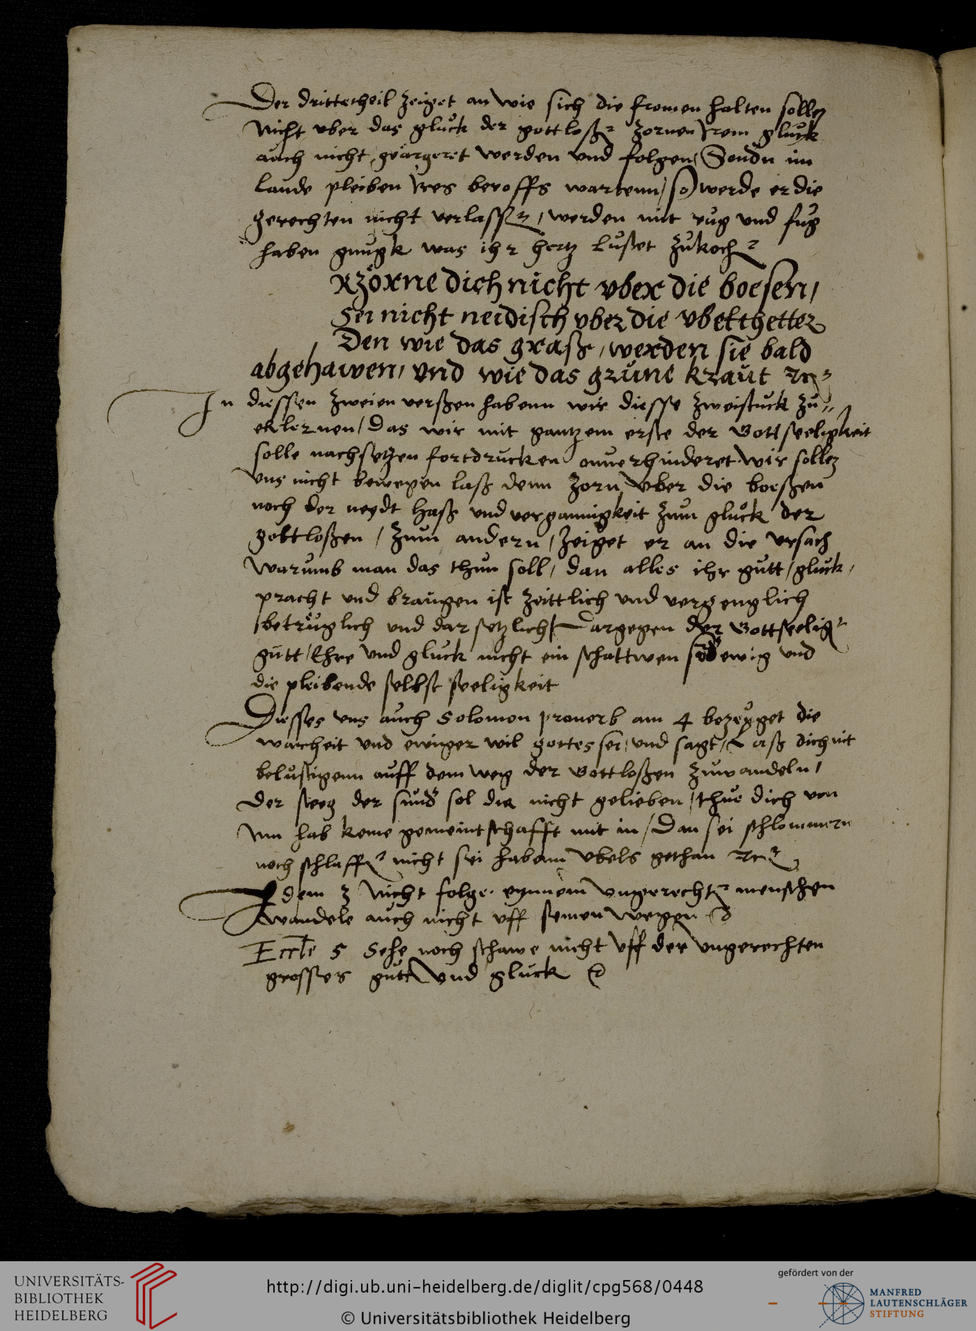 Der dritte theil zeiget an wie sich die fromen halten sollen
Nicht vber das gluck der gottloßen zornen irem gluck
auch nicht geargeret werden und folgen Sondn im
lande pleiben wartenn so werde er die
gerechten nicht verlassen, werden mit fug und fug
haben gnugk was ihr hertz lustet zu
Erzörne dich nicht vber die boesen,
sei nicht neidisch vber die vbelthetter
Den wie das graß, werden sie bald
abgehawen, vnd wie das grüne kraut
In diessen zweien verßen habenn wir diesse zwei stuck zu
erlernen, das wir mit gantzem erste der Gottseeligkeit
solle nachsetzen fortdrucken onverhinderet wir sollen
uns nicht bewegen laß denn zorn vber die boeßen
noch der neydt haß und vergunnigkeit zum gluck der
gottloßen, zum andern, zeiget er an die vrsach
warumb man das thun soll, dan alles ihr gutt, gluck,
pracht und brangen ist zeittlich und vergenglich
betruglich und dargegen der Gottseelig
gutt, Ehre und gluck nicht ein schattwen ewig und
die pleibende selbst seeligkeit
Diesses uns auch Solomon proverb am 4 bezeuget die
warheit und ewiger wil gottes sei, und sagt, Laß dich nit
belustigenn auff dem weg der Gottloßen zuwandeln,
Der steeg der sol dir nicht gelieben, thue dich von
im hab keine gemeintschafft mit in, Dan sei schlommern
noch schlaffen nicht sei habenn vbels gethan
Idem 3 Nicht folge eynnem ungerechten menschen
wandele auch nicht uff seinen wegen
Eccle 5 Sehe noch schawe nicht uff der ungerechten
grosses gutt und gluck
UNIVERSITÄTS-
BIBLIOTHEK
HEIDELBERG
http://digi.ub.uni-heidelberg.de/diglit/cpg568/0448
© Universitätsbibliothek Heidelberg
gefördert von der
MANFRED
LAUTENSCHLÄGER
STIFTUNG